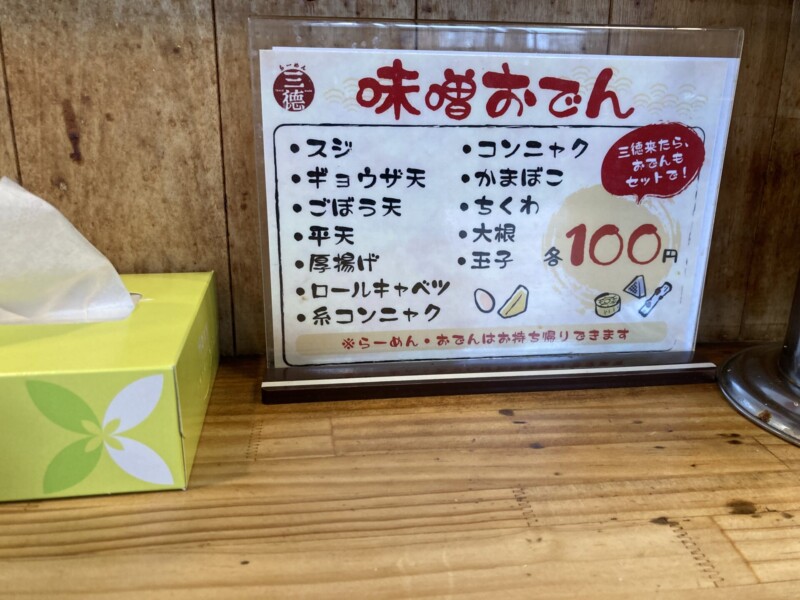 らーめん
三徳
味噌おでん
•スジ
•ギョウザ天
•ごぼう天
•平天
•厚揚げ
•ロールキャベツ
•糸コンニャク
•コンニャク
•かまぼこ
•ちくわ
•大根
•玉子
三徳来たら、
おでんも
セットで!
各100円
※らーめん・おでんはお持ち帰りできます